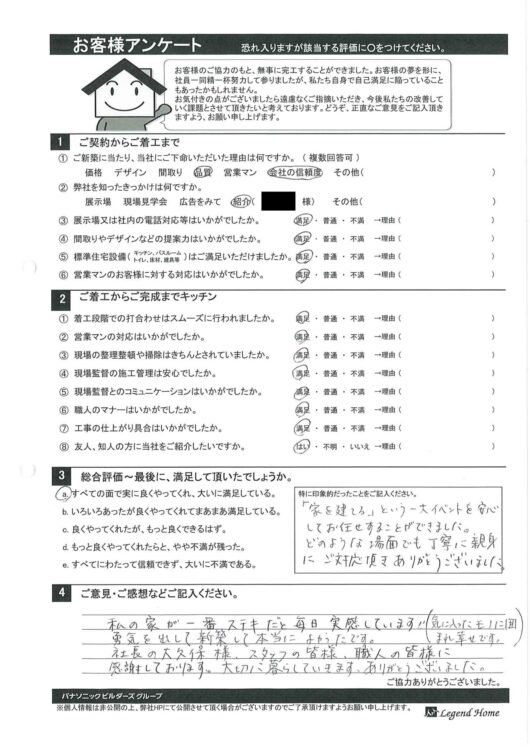 お客様アンケート 恐れ入りますが該当する評価に○をつけてください。
お客様のご協力のもと、無事に完工することができました。お客様の夢を形に、
社員一同精一杯努力して参りましたが、私たち自身で自己満足に陥っていること
もあったかもしれません。
お気付きの点がございましたら遠慮なくご指摘いただき、今後私たちの改善して
いく課題とさせて頂きたいと考えております。どうぞ、正直なご意見をご記入頂き
ますよう、お願い申し上げます。
1 ご契約からご着工まで
① ご新築に当たり、当社にご下命いただいた理由は何ですか。（複数回答可）
価格 デザイン 間取り 品質 営業マン 会社の信頼度 その他( )
② 弊社を知ったきっかけは何ですか。
展示場 現場見学会 広告をみて 紹介( 様) その他( )
③ 展示場又は社内の電話対応等はいかがでしたか。 満足 ・ 普通 ・ 不満 →理由( )
④ 間取りやデザインなどの提案力はいかがでしたか。 満足 ・ 普通 ・ 不満 →理由( )
⑤ 標準住宅設備(キッチン、バスルーム トイレ、床材、建具等)はご満足いただけましたか。 満足 ・ 普通 ・ 不満 →理由( )
⑥ 営業マンのお客様に対する対応はいかがでしたか。 満足 ・ 普通 ・ 不満 →理由( )
2 ご着工からご完成までキッチン
① 着工段階での打合わせはスムーズに行われましたか。 満足 ・ 普通 ・ 不満 →理由( )
② 営業マンの対応はいかがでしたか。 満足 ・ 普通 ・ 不満 →理由( )
③ 現場の整理整頓や掃除はきちんとされていましたか。 満足 ・ 普通 ・ 不満 →理由( )
④ 現場監督の施工管理は安心でしたか。 満足 ・ 普通 ・ 不満 →理由( )
⑤ 現場監督とのコミュニケーションはいかがでしたか。 満足 ・ 普通 ・ 不満 →理由( )
⑥ 職人のマナーはいかがでしたか。 満足 ・ 普通 ・ 不満 →理由( )
⑦ 工事の仕上がり具合はいかがでしたか。 満足 ・ 普通 ・ 不満 →理由( )
⑧ 友人、知人の方に当社をご紹介したいですか。 はい ・ 不明 ・ いいえ →理由( )
3 総合評価～最後に、満足して頂いたでしょうか。
a. すべての面で実に良くやってくれ、大いに満足している。
b. いろいろあったが良くやってくれてまあまあ満足している。
c. 良くやってくれたが、もっと良くできるはず。
d. もっと良くやってくれたらと、やや不満が残った。
e. すべてにわたって信頼できず、大いに不満である。
特に印象的だったことをご記入ください。
「家を建てる」という一大イベントを安心
してお任せすることができました。
どのような場面でも丁寧に親身
にご対応頂きありがとうございました。
4 ご意見・ご感想などご記入ください。
私の家が一番ステキだと毎日実感しています!!(気に入ったモノに囲
まれ幸せです。)
勇気を出して新築して本当によかったです。
社長の大久保様、スタッフの皆様、職人の皆様に
感謝しております。大切に暮らしていきます。ありがとうございました。
ご協力ありがとうございました。
パナソニックビルダーズ グループ
※個人情報は非公開の上、弊社HPにて公開させて頂く場合がございますのでご了承頂けますようお願い申し上げます。
Legend Home